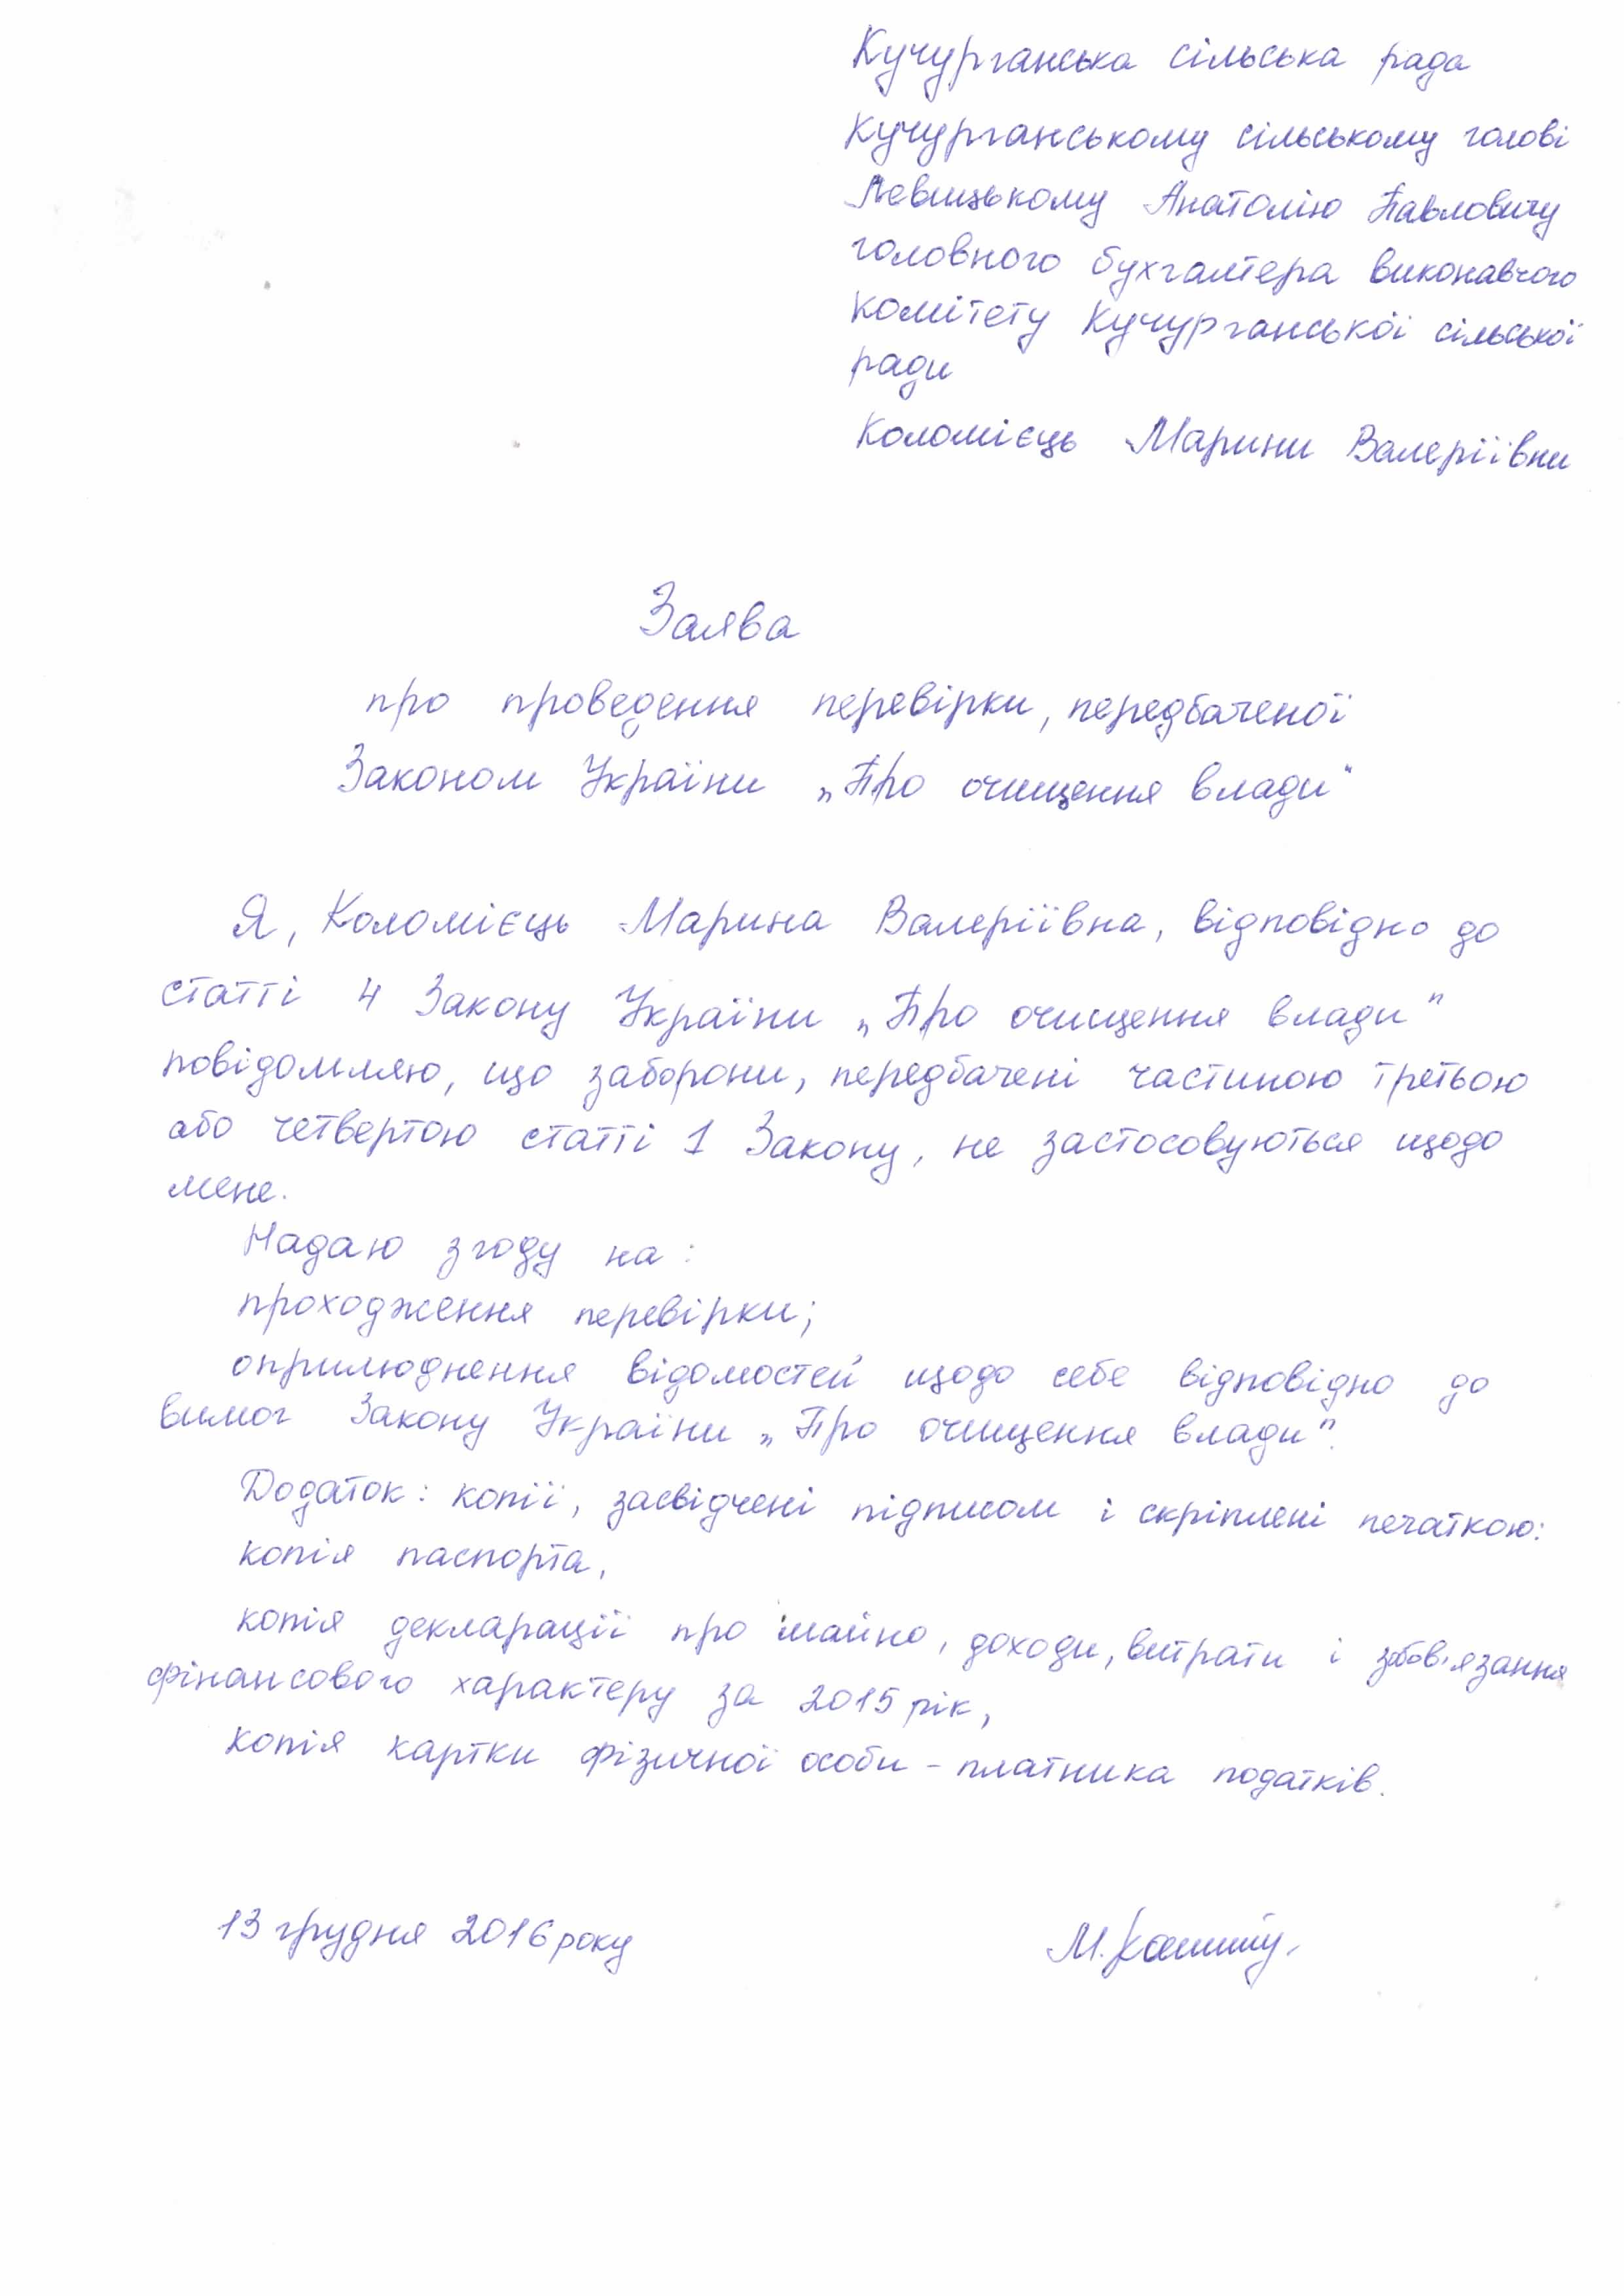 Кучурганська сільська рада
Кучурганському сільському голові
Левицькому Анатолію Павловичу
головного бухгалтера виконавчого
комітету Кучурганської сільської
ради
Коломієць Марини Валеріївни
Заява
про проведення перевірки, передбаченої
Законом України „Про очищення влади"
Я, Коломієць Марина Валеріївна, відповідно до
статті 4 Закону України „Про очищення влади"
повідомляю, що заборони, передбачені частиною третьою
або четвертою статті 1 Закону, не застосовуються щодо
мене.
Надаю згоду на:
проходження перевірки;
оприлюднення відомостей щодо себе відповідно до
вимог Закону України „Про очищення влади".
Додаток: копії, засвідчені підписом і скріплені печаткою:
копія паспорта,
копія декларації про майно, доходи, витрати і зобов'язання
фінансового характеру за 2015 рік,
копія картки фізичної особи - платника податків.
13 грудня 2016 року М.